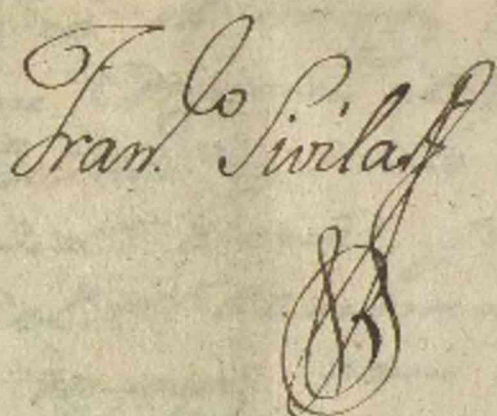 Fran.co Sivila